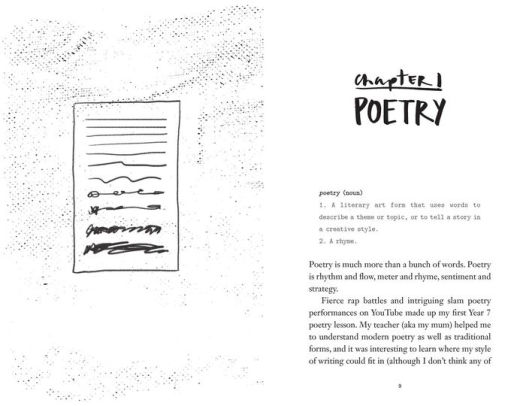 chapter 1
POETRY
poetry (noun)
1. A literary art form that uses words to
describe a theme or topic, or to tell a story in
a creative style.
2. A rhyme.
Poetry is much more than a bunch of words. Poetry
is rhythm and flow, meter and rhyme, sentiment and
strategy.
Fierce rap battles and intriguing slam poetry
performances on YouTube made up my first Year 7
poetry lesson. My teacher (aka my mum) helped me
to understand modern poetry as well as traditional
forms, and it was interesting to learn where my style
of writing could fit in (although I don't think any of
9